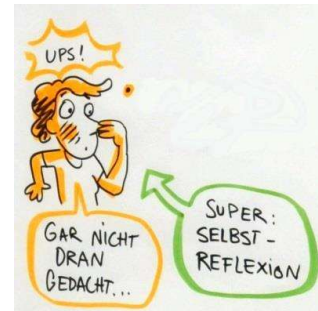 UPS!
GAR NICHT
DRAN
GEDACHT...
SUPER:
SELBST-
REFLEXION